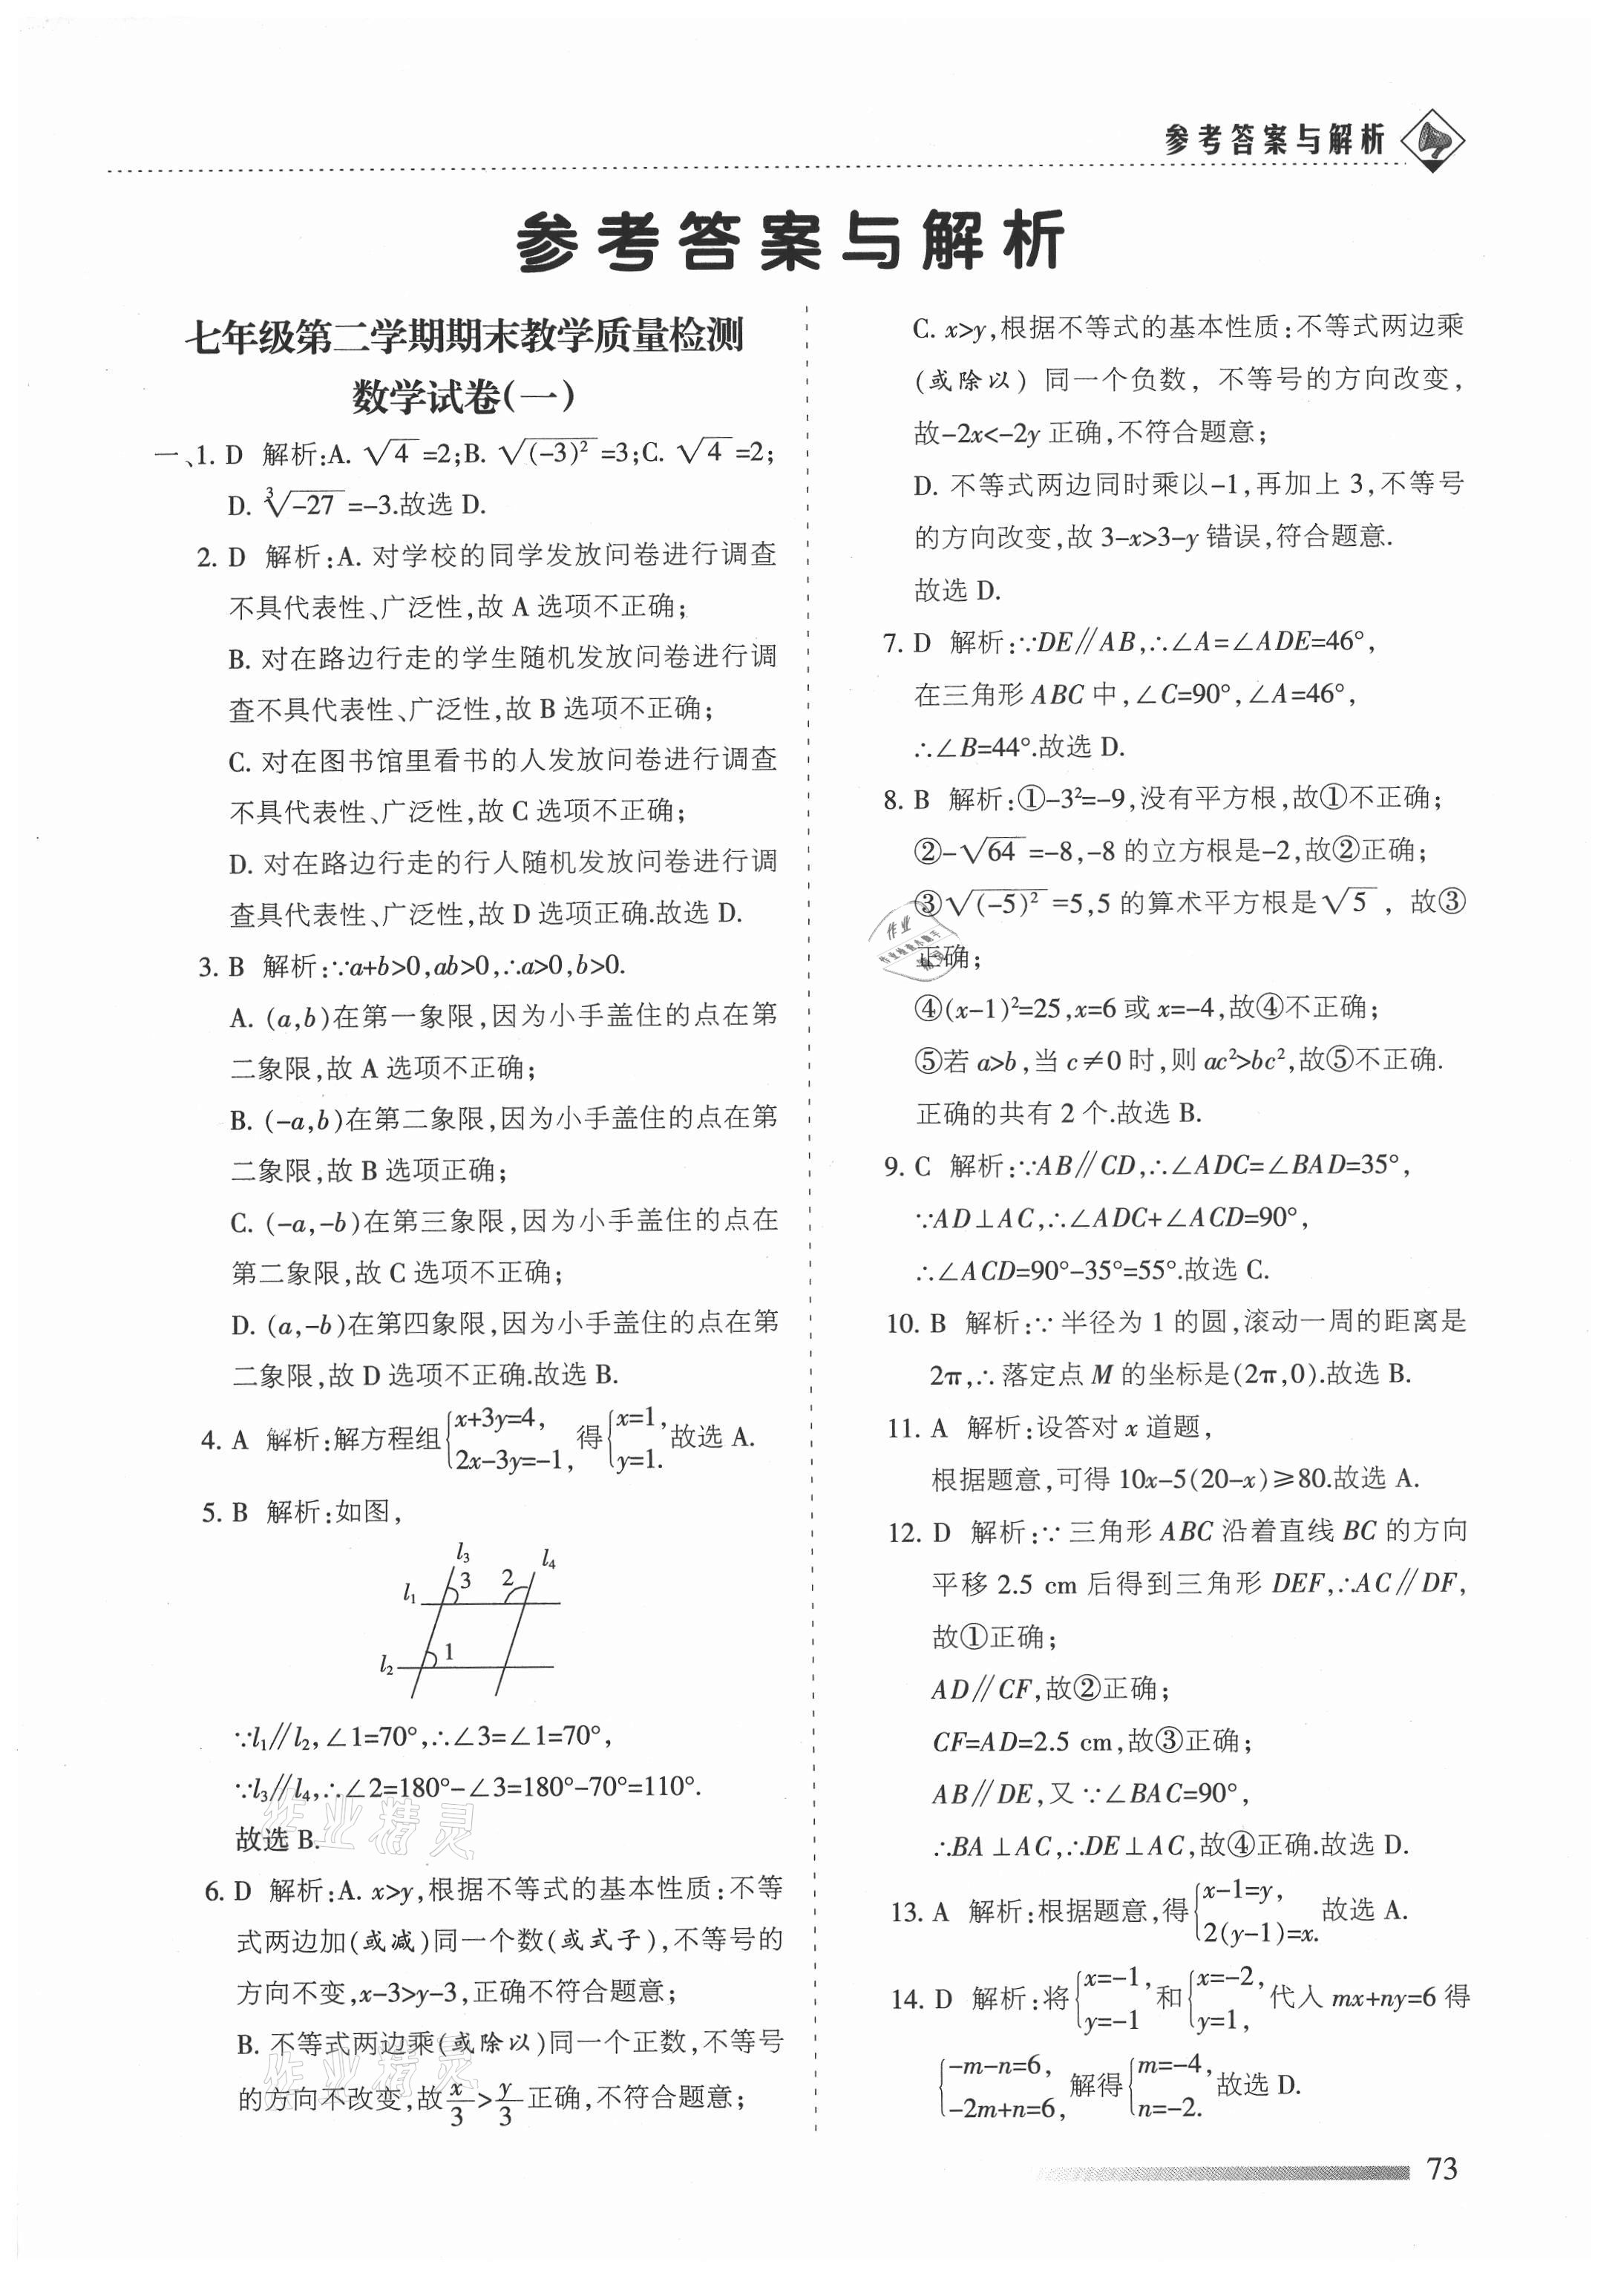 参考答案与解析
参考答案与解析
七年级第二学期期末教学质量检测
数学试卷(一)
一、1. D 解析:A. √4=2;B. √(-3)²=3;C. √4=2;
D. ∛-27=-3.故选 D.
2. D 解析:A. 对学校的同学发放问卷进行调查
不具代表性、广泛性,故 A 选项不正确;
B. 对在路边行走的学生随机发放问卷进行调
查不具代表性、广泛性,故 B 选项不正确;
C. 对在图书馆里看书的人发放问卷进行调查
不具代表性、广泛性,故 C 选项不正确;
D. 对在路边行走的行人随机发放问卷进行调
查具代表性、广泛性,故 D 选项正确.故选 D.
3. B 解析:∵a+b>0,ab>0,∴a>0,b>0.
A. (a,b)在第一象限,因为小手盖住的点在第
二象限,故 A 选项不正确;
B. (-a,b)在第二象限,因为小手盖住的点在第
二象限,故 B 选项正确;
C. (-a,-b)在第三象限,因为小手盖住的点在
第二象限,故 C 选项不正确;
D. (a,-b)在第四象限,因为小手盖住的点在第
二象限,故 D 选项不正确.故选 B.
4. A 解析:解方程组{x+3y=4, 2x-3y=-1, 得{x=1, y=1. 故选 A.
5. B 解析:如图,
l₃ l₄
l₁ 3 2
l₂ 1
∵l₁∥l₂,∠1=70°,∴∠3=∠1=70°,
∵l₃∥l₄,∴∠2=180°-∠3=180°-70°=110°.
故选 B.
作业精灵
6. D 解析:A. x>y,根据不等式的基本性质:不等
式两边加(或减)同一个数(或式子),不等号的
方向不变,x-3>y-3,正确不符合题意;
B. 不等式两边乘(或除以)同一个正数,不等号
的方向不改变,故x/3>y/3正确,不符合题意;
作业精灵
C. x>y,根据不等式的基本性质:不等式两边乘
(或除以) 同一个负数, 不等号的方向改变,
故-2x<-2y 正确,不符合题意;
D. 不等式两边同时乘以-1,再加上 3,不等号
的方向改变,故 3-x>3-y 错误,符合题意.
故选 D.
7. D 解析:∵DE∥AB,∴∠A=∠ADE=46°,
在三角形 ABC 中,∠C=90°,∠A=46°,
∴∠B=44°.故选 D.
8. B 解析:①-3²=-9,没有平方根,故①不正确;
②-√64=-8,-8 的立方根是-2,故②正确;
③√(-5)²=5,5 的算术平方根是√5, 故③
正确;
作业
④(x-1)²=25,x=6 或 x=-4,故④不正确;
⑤若 a>b,当 c≠0 时,则 ac²>bc²,故⑤不正确.
正确的共有 2 个.故选 B.
9. C 解析:∵AB∥CD,∴∠ADC=∠BAD=35°,
∵AD⊥AC,∴∠ADC+∠ACD=90°,
∴∠ACD=90°-35°=55°.故选 C.
10. B 解析:∵半径为 1 的圆,滚动一周的距离是
2π,∴落定点 M 的坐标是(2π,0).故选 B.
11. A 解析:设答对 x 道题,
根据题意,可得 10x-5(20-x)≥80.故选 A.
12. D 解析:∵三角形 ABC 沿着直线 BC 的方向
平移 2.5 cm 后得到三角形 DEF,∴AC∥DF,
故①正确;
AD∥CF,故②正确;
CF=AD=2.5 cm,故③正确;
AB∥DE,又∵∠BAC=90°,
∴BA⊥AC,∴DE⊥AC,故④正确.故选 D.
13. A 解析:根据题意,得{x-1=y, 2(y-1)=x. 故选 A.
14. D 解析:将{x=-1, y=-1 和{x=-2, y=1, 代入 mx+ny=6 得
{-m-n=6, -2m+n=6, 解得{m=-4, n=-2. 故选 D.
73